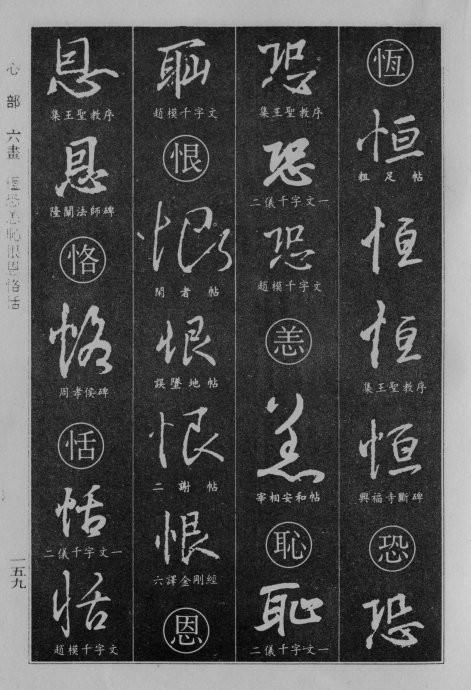 恆
恒
粗足帖
恒
恒
集王聖教序
恒
興福寺斷碑
恐
恐
恐
集王聖教序
恐
二儀千字文一
恐
趙模千字文
恙
恙
宰相安和帖
恥
恥
二儀千字文一
恥
趙模千字文
恨
恨
閑者帖
恨
誤墜地帖
恨
二謝帖
恨
六譯金剛經
恩
恩
集王聖教序
恩
隆闡法師碑
恪
恪
周孝侯碑
恬
恬
二儀千字文一
恬
趙模千字文
心部 六畫 恆恐恙恥恨恩恪恬
一五九